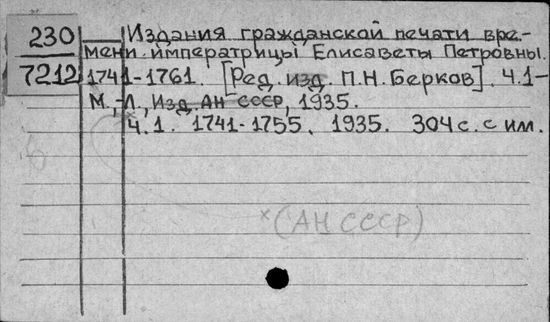 230
7212
Издания гражданской печати вре-
мени императрицы Елисаветы Петровны.
1741-1761. [Ред. изд. П.Н. Берков]. Ч.1-
М.,-Л., Изд. АН СССР, 1935.
Ч.1. 1741-1755. 1935. 304 с. с им.
×(АН СССР)